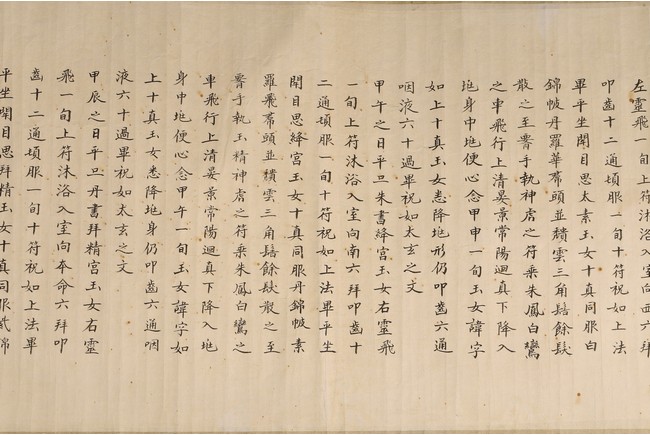 左靈飛一旬上符沐浴入室向西六拜
叩齒十二通頓服一旬十符祝如上法
畢平坐閉目思太素玉女十真同服白
錦帔丹羅華帬頭並頹雲三角髻餘髮
散之至署手執神虎之符乘朱鳳白鸞
之車飛行上清晏景常陽迴真下降入
兆身中兆便心念甲申一旬玉女諱字
如上十真玉女悉降兆形仍叩齒六通
咽液六十過畢祝如太玄之文
甲午之日平旦朱書絳宮玉女右靈飛
一旬上符沐浴入室向南六拜叩齒十
二通頓服一旬十符祝如上法畢平坐
閉目思絳宮玉女十真同服丹錦帔素
羅飛帬頭並頹雲三角髻餘髮散之至
署手執玉精神虎之符乘朱鳳白鸞之
車飛行上清晏景常陽迴真下降入兆
身中兆便心念甲午一旬玉女諱字如
上十真玉女悉降兆身仍叩齒六通咽
液六十過畢祝如太玄之文
甲辰之日平旦丹書拜精宮玉女右靈
飛一旬上符沐浴入室向本命六拜叩
齒十二通頓服一旬十符祝如上法畢
平坐閉目思拜精玉女十真同服錦